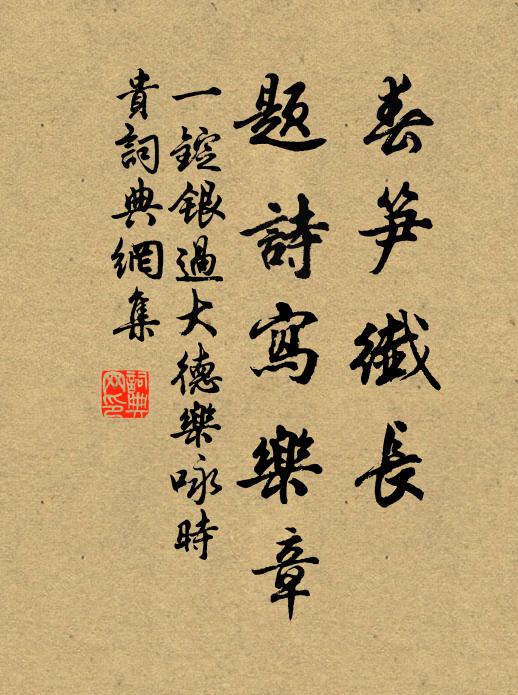 春笋纖長
題詩寫樂章
一錠銀過大德樂咏時
貴詞典網集
詞典網印